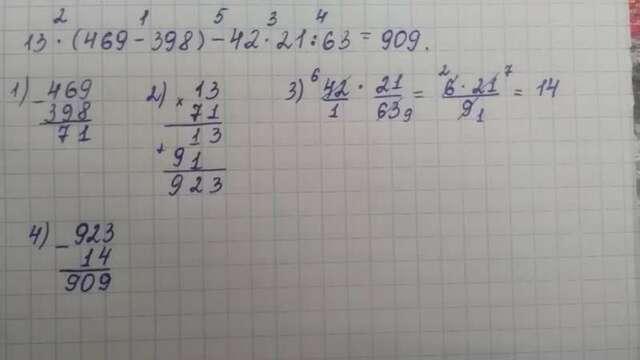 2 1 5 3 4
13 · (469 - 398) - 42 · 21 : 63 = 909.
1) - 469
398
71
2) × 13
71
13
+ 91
923
3) ⁶42/1 · 21/63₉ = ²6 · 21⁷/9₁ = 14
4) - 923
14
909